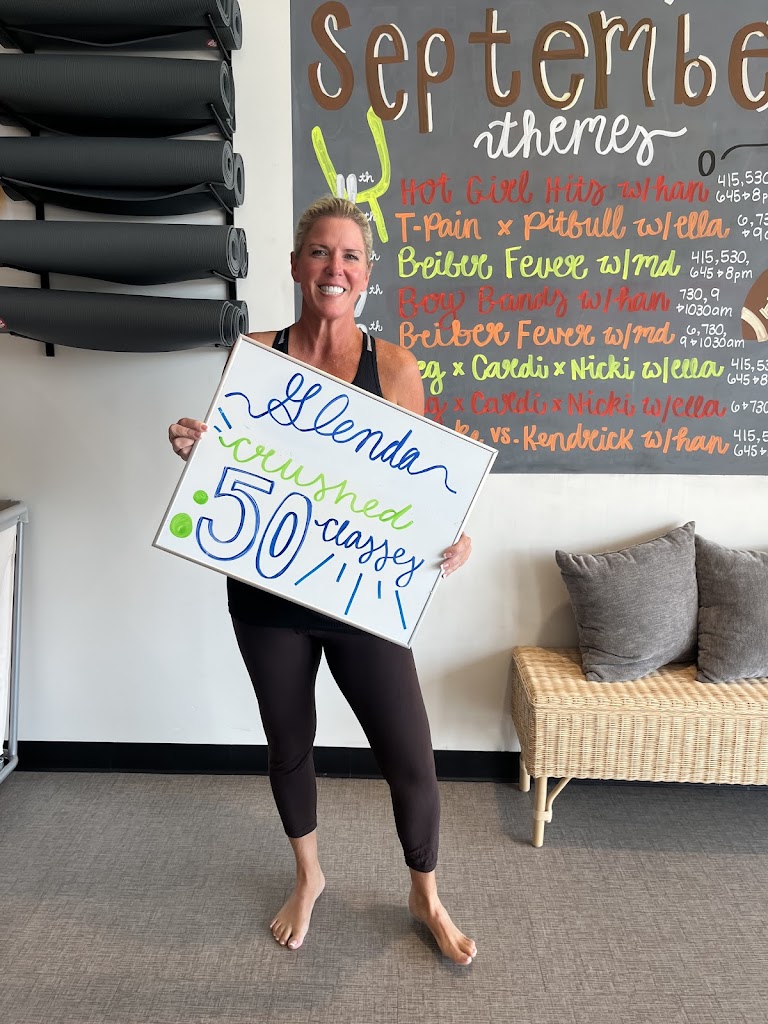 Septembe
themes
th
Hot Girl Hits w/han 415,530
645+8p
T-Pain x Pitbull w/ella 6,73
+9
Beiber Fever w/md 415,530,
645+8pm
Boy Bands w/han 730,9
+1030am
th
Beiber Fever w/md 6,730,
9+1030am
eg x Cardi x Nicki w/ella 415,53
645+8
x Cardi x Nicki w/ella 6+730
ke vs. Kendrick w/han 415,5
645+
Glenda
crushed
50 classes